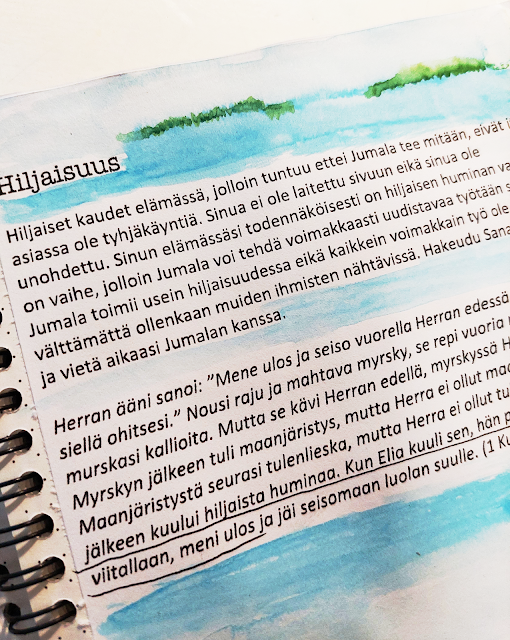 Hiljaisuus
Hiljaiset kaudet elämässä, jolloin tuntuu ettei Jumala tee mitään, eivät
asiassa ole tyhjäkäyntiä. Sinua ei ole laitettu sivuun eikä sinua ole
unohdettu. Sinun elämässäsi todennäköisesti on hiljaisen huminan
on vaihe, jolloin Jumala voi tehdä voimakkaasti uudistavaa työtään
Jumala toimii usein hiljaisuudessa eikä kaikkein voimakkain työ ole
välttämättä ollenkaan muiden ihmisten nähtävissä. Hakeudu
ja vietä aikaasi Jumalan kanssa.
Herran ääni sanoi: ”Mene ulos ja seiso vuorella Herran edessä
siellä ohitsesi.” Nousi raju ja mahtava myrsky, se repi vuoria
murskasi kallioita. Mutta se kävi Herran edellä, myrskyssä
Myrskyn jälkeen tuli maanjäristys, mutta Herra ei ollut
Maanjäristystä seurasi tulenlieska, mutta Herra ei ollut
jälkeen kuului hiljaista huminaa. Kun Elia kuuli sen, hän
viitallaan, meni ulos ja jäi seisomaan luolan suulle. (1